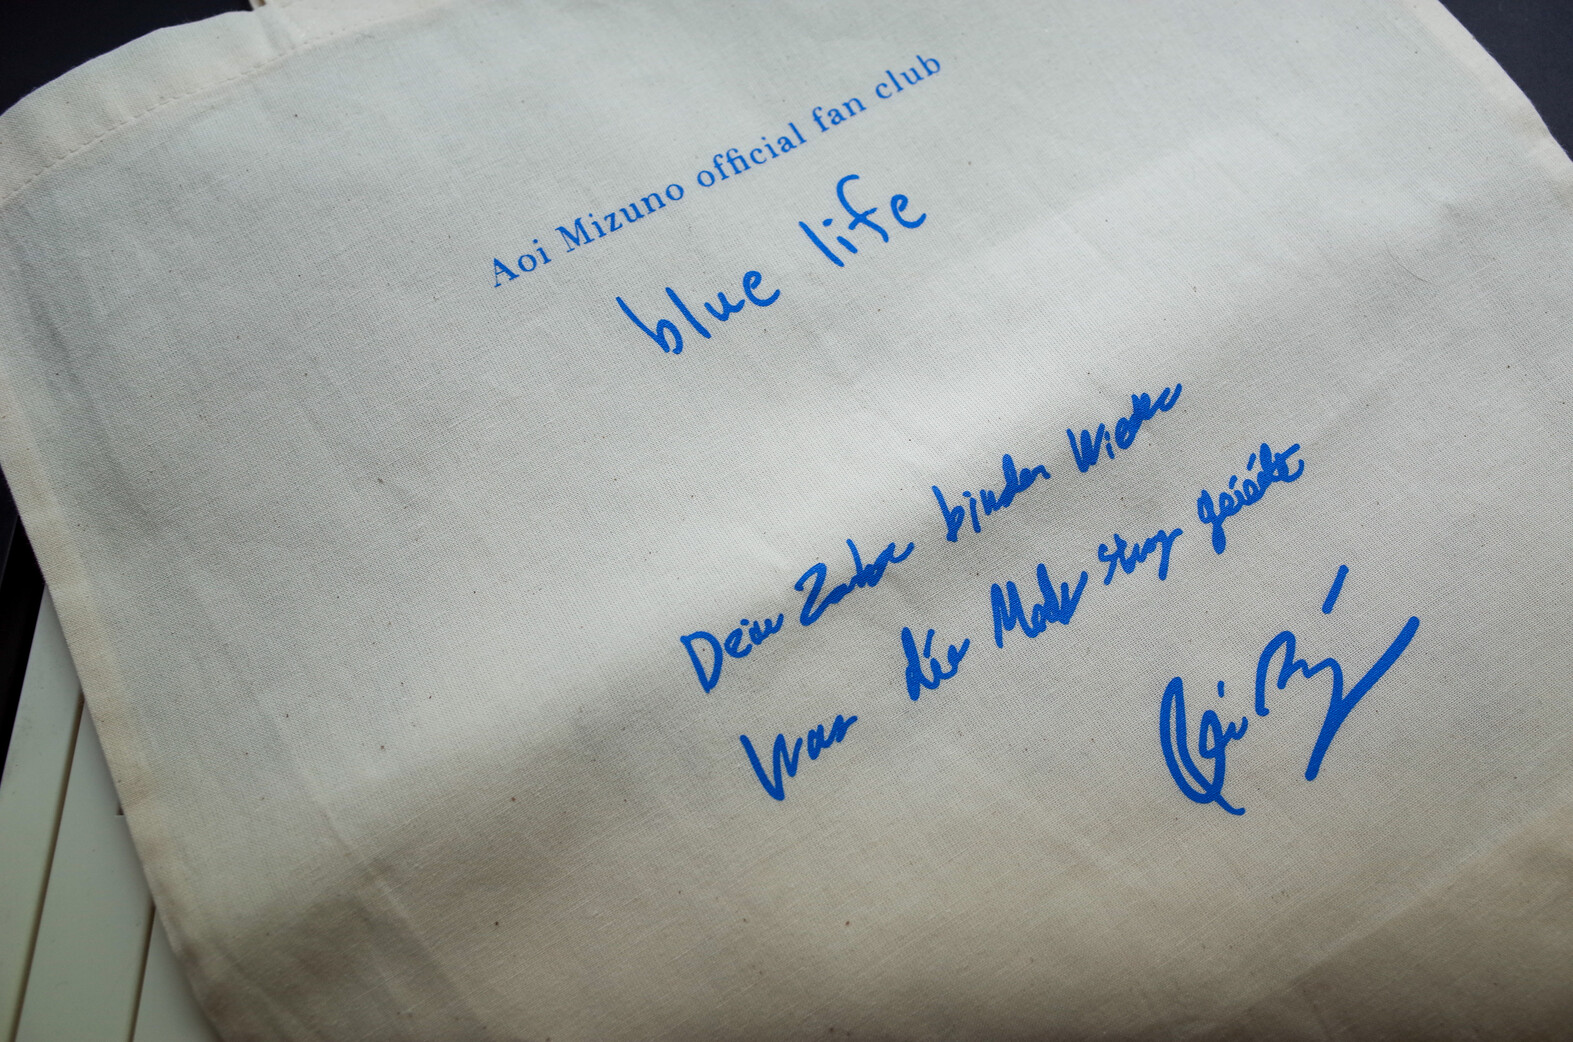 Aoi Mizuno official fan club
blue life
Deine Zauber binden wieder
Was die Mode streng geteilt